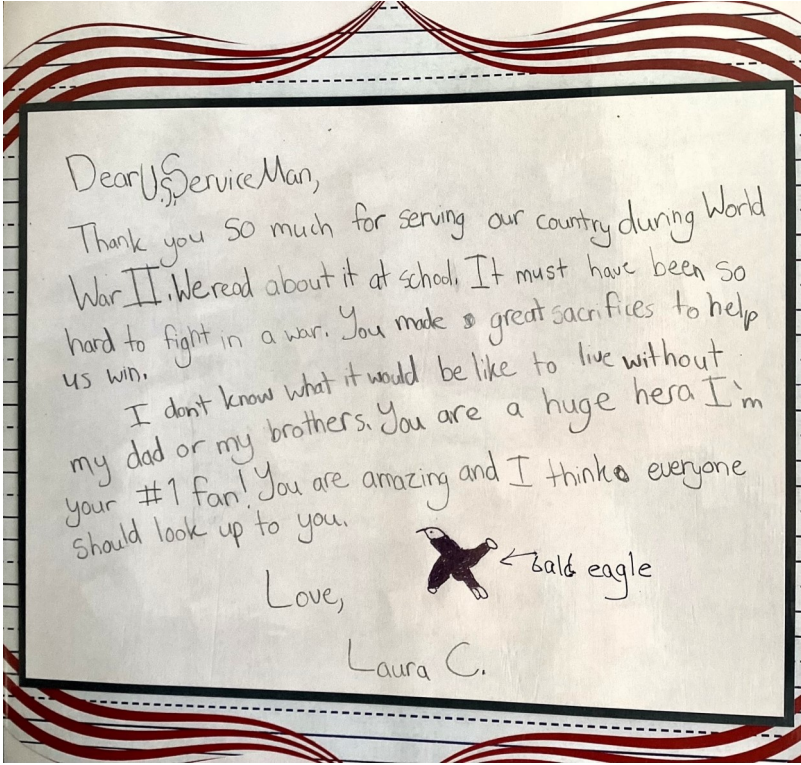 Dear U.S. Service Man,
Thank you so much for serving our country during World
War II. We read about it at school. It must have been so
hard to fight in a war. You made great sacrifices to help
us win.
I don't know what it would be like to live without
my dad or my brothers. You are a huge hero I'm
your #1 fan! You are amazing and I think everyone
should look up to you.
← bald eagle
Love,
Laura C.